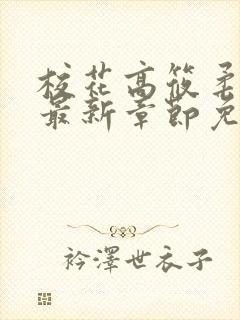 校花高筱柔
最新章節免
衿澤世衣子